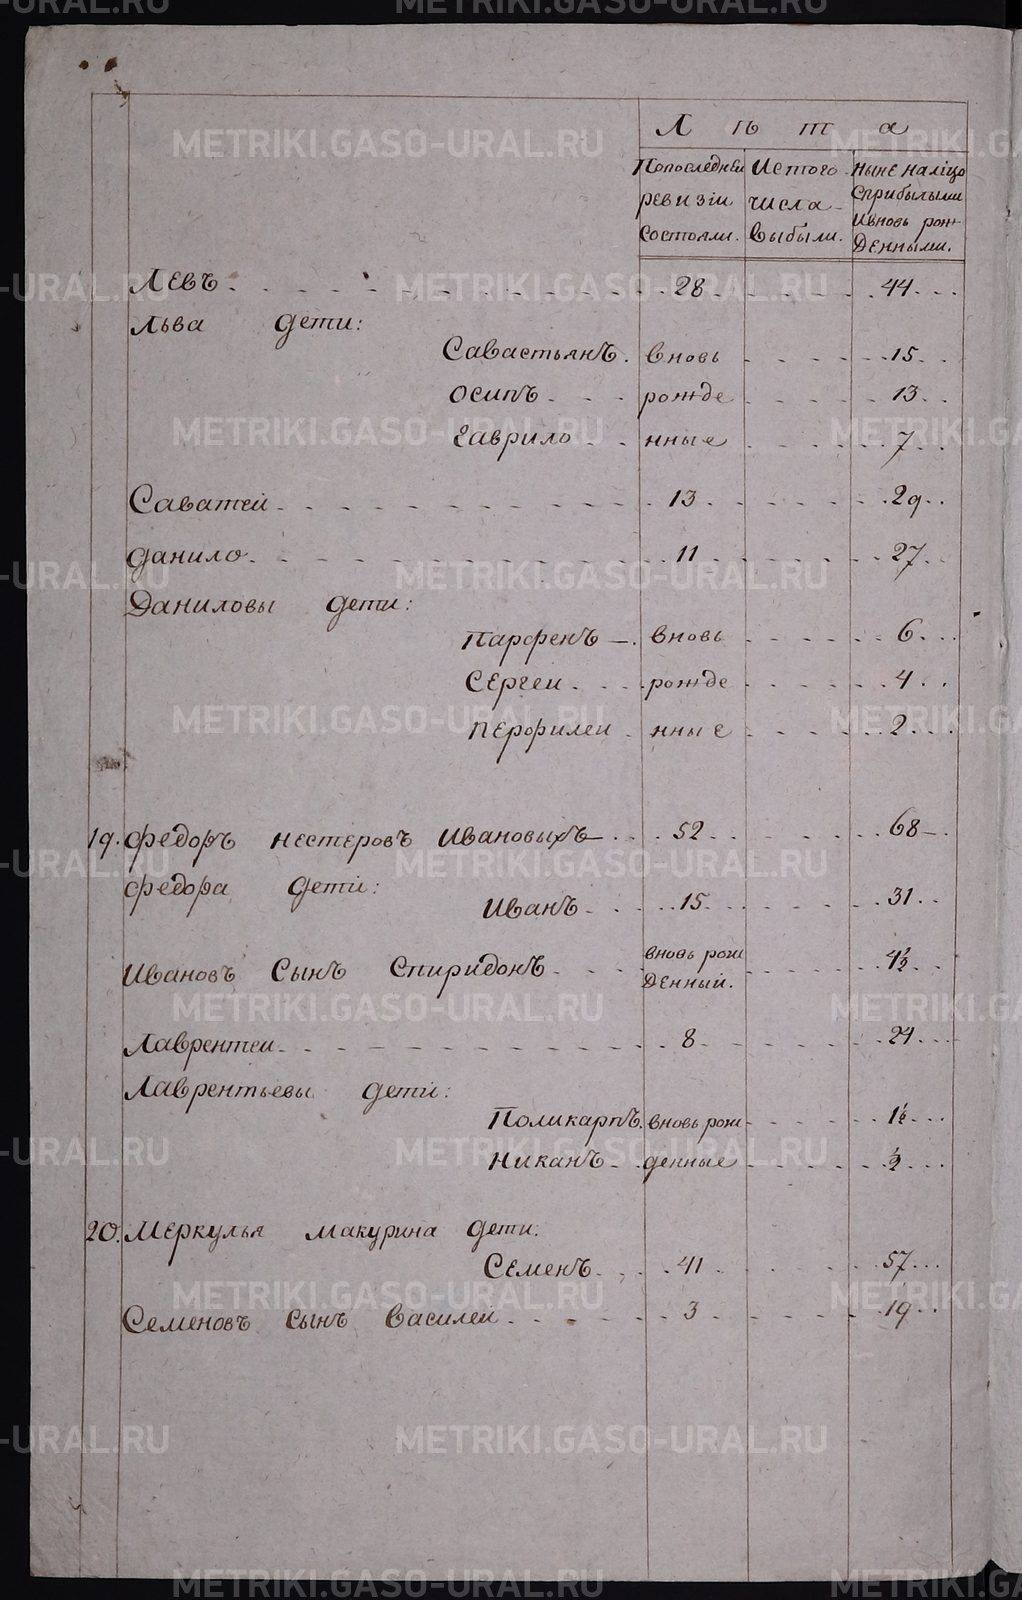 Лѣта
Попоследней ревизіи состояли.
Истого числа выбыли.
Ныне налицо сприбылыми ивновь рожденными.
Левъ 28 44
Льва дети:
Савастьянъ. вновь 15
Осипъ рожде 13
Гаврило нные 7
Саватей 13 29
Данило 11 27
Даниловы дети:
Парфенъ вновь 6
Сергеи рожде 4
Перфилеи нные 2
19. Федоръ Нестеровъ Ивановыхъ 52 68
Федора дети:
Иванъ 15 31
Ивановъ сынъ Спиридонъ вновь рожденный. 4½
Лаврентеи 8 24
Лаврентьевы дети:
Поликарпъ вновь рож 1½
Никанъ денные ½
20. Меркулья Макурина дети:
Семенъ 41 57
Семеновъ сынъ Василеи 3 19
METRIKI.GASO-URAL.RU